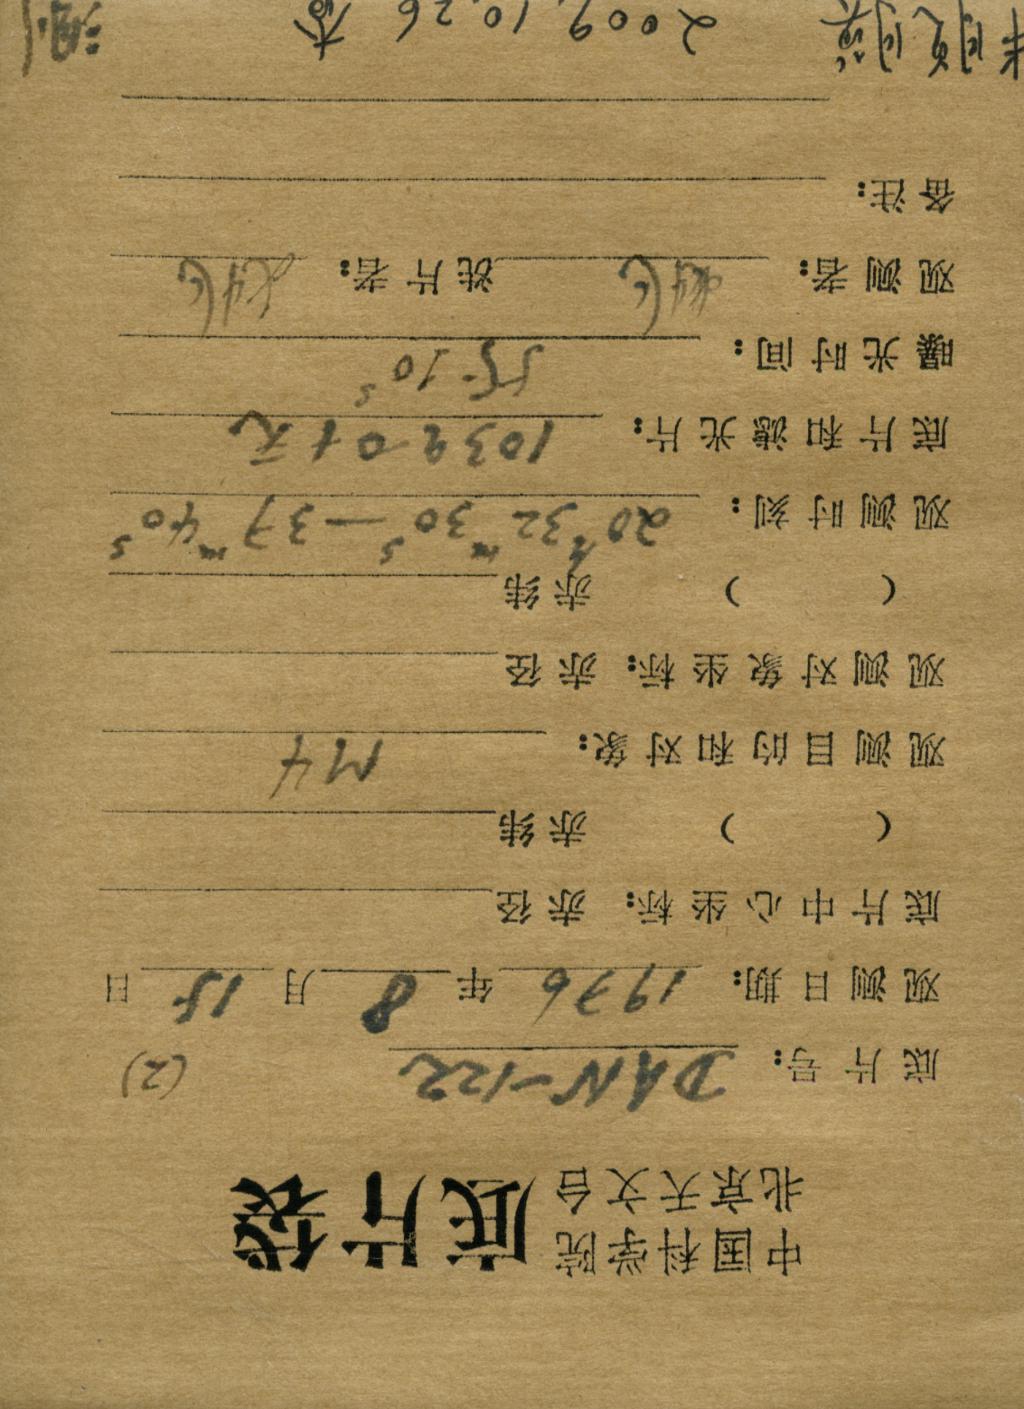 中国科学院
北京天文台 底片袋
底片号: DAN-122 (2)
观测日期: 1976年8月15日
底片中心坐标: 赤径
( ) 赤纬
观测目的和对象: M4
观测对象坐标: 赤径
( ) 赤纬
观测时刻: 20h32m30s—37m40s
底片和滤光片: 103a-O+无
曝光时间: 5m10s
观测者: 洗片者:
备注:
2009.10.26 查